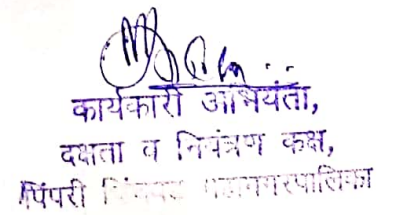 कार्यकारी अभियंता,
दक्षता व नियंत्रण कक्ष,
पिंपरी चिंचवड महानगरपालिका